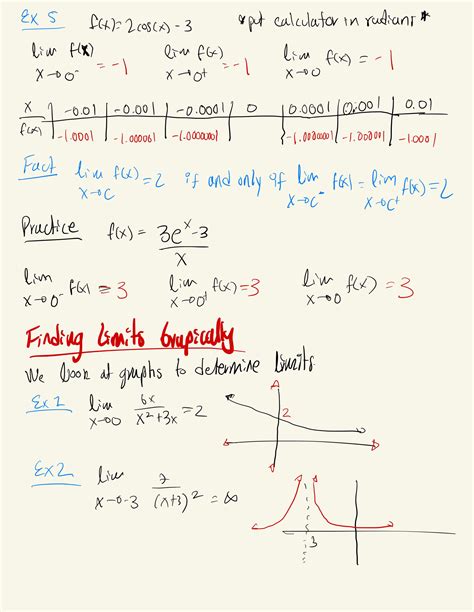 Ex 5 f(x)=2cos(x)-3 *put calculator in radiant*
lim x→0⁻ f(x) = -1 lim x→0⁺ f(x) = -1 lim x→0 f(x) = -1
x | -0.01 | -0.001 | -0.0001 | 0 | 0.0001 | 0.001 | 0.01
f(x) | -1.0001 | -1.000001 | -1.00000001 | | -1.00000001 | -1.000001 | -1.0001
Fact lim x→c f(x) = 2 if and only if lim x→c⁻ f(x) = lim x→c⁺ f(x) = 2
Practice f(x) = (3eˣ-3)/x
lim x→0⁻ f(x) = 3 lim x→0⁺ f(x) = 3 lim x→0 f(x) = 3
Finding Limits Grapically
We look at graphs to determine limits
Ex 1 lim x→0 6x/(x²+3x) = 2
2
Ex 2 lim x→-3 2/(x+3)² = ∞
-3